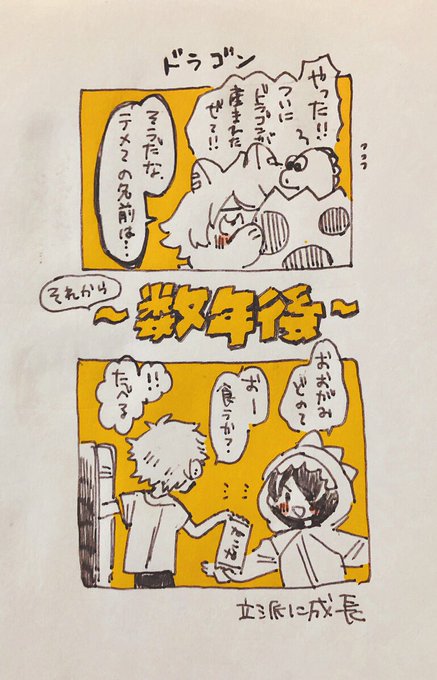 ドラゴン
やった!!
ついに
ドラゴンが
産まれた
ぜて!!
そうだな
テメエの名前は…
それから
~数年後~
おおがみ
どのて
おー
食うか?
!!
たべる
立派に成長